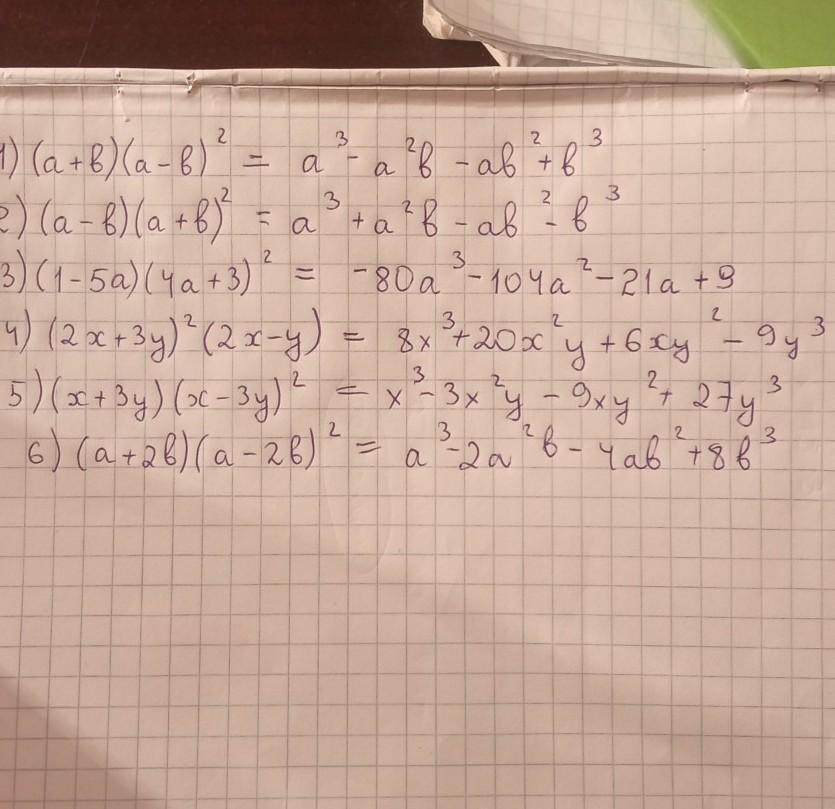 1) (a+b)(a-b)² = a³ - a²b - ab² + b³
2) (a-b)(a+b)² = a³ + a²b - ab² - b³
3) (1-5a)(4a+3)² = -80a³ - 104a² - 21a + 9
4) (2x+3y)²(2x-y) = 8x³ + 20x²y + 6xy² - 9y³
5) (x+3y)(x-3y)² = x³ - 3x²y - 9xy² + 27y³
6) (a+2b)(a-2b)² = a³ - 2a²b - 4ab² + 8b³